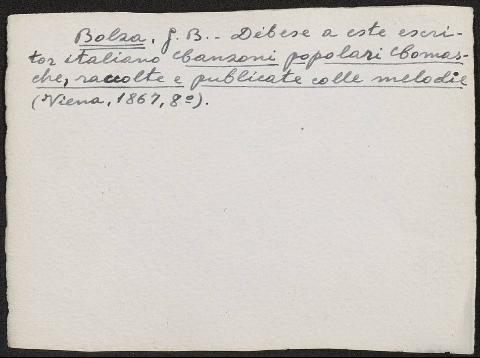 Bolza, J. B.- Débese a este escri-
tor italiano Canzoni popolari Comas-
che, raccolte e publicate colle melodie
(Viena, 1867, 8º).